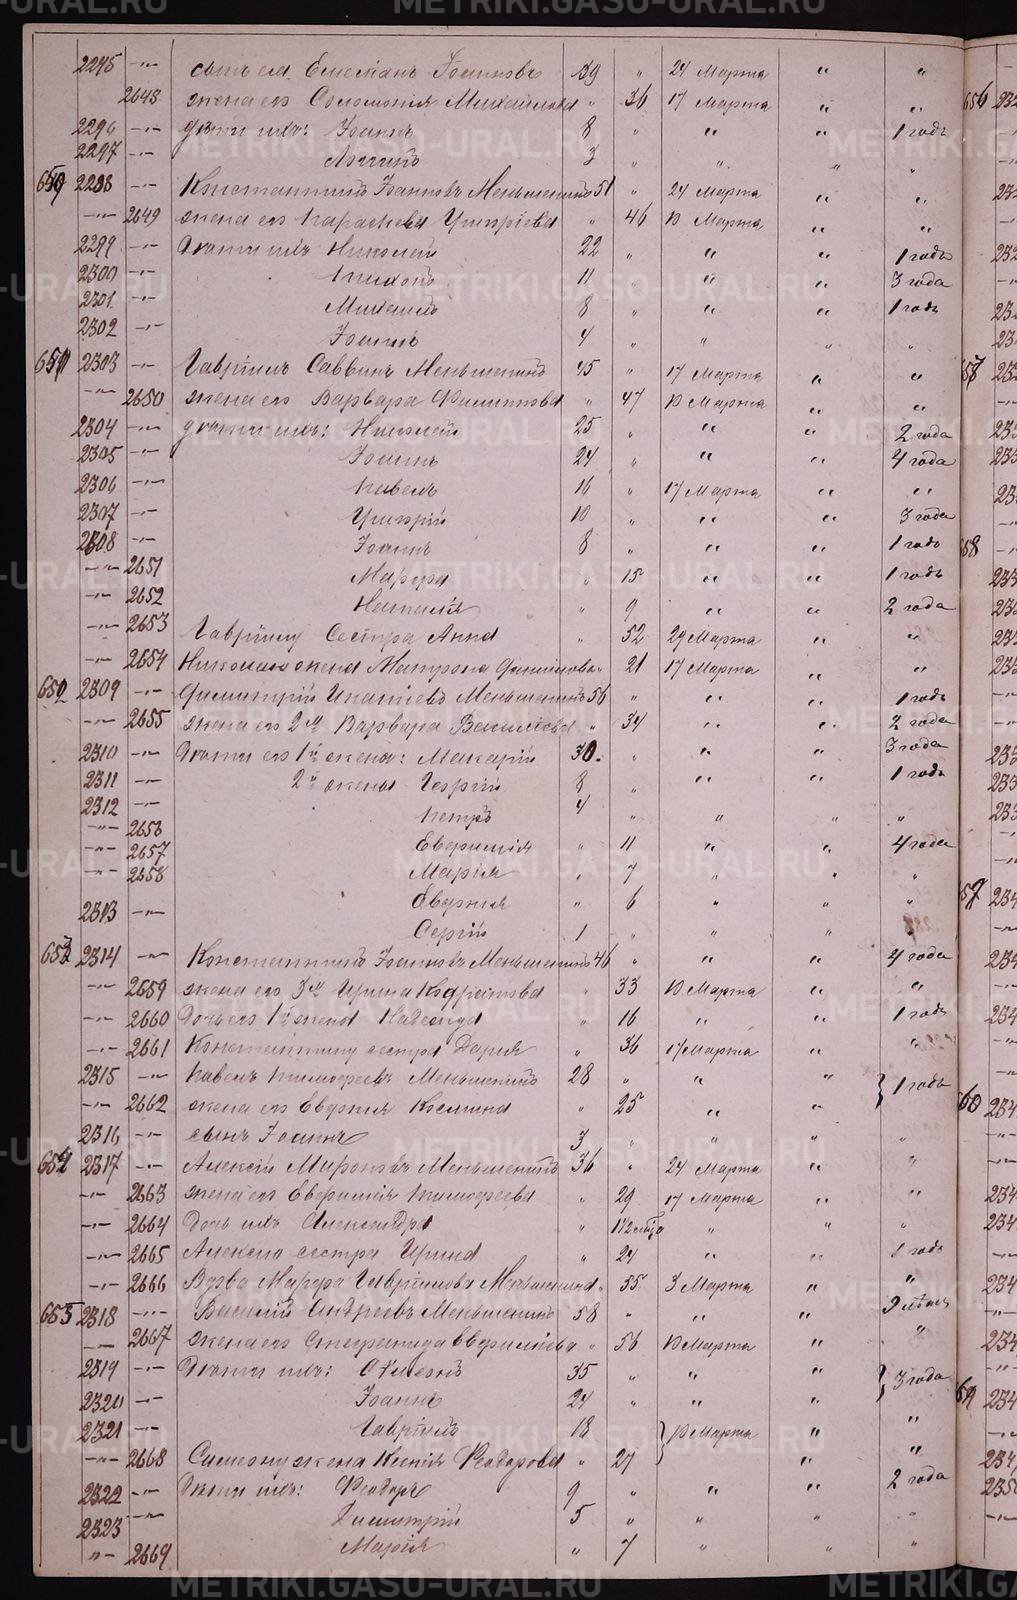 2295 —"— сынъ ея Емеліанъ Іоанновъ 39 " 24 Марта " "
2648 жена его Соломонія Михайлова " 36 17 Марта " "
2296 —"— дѣти ихъ: Іоаннъ 8 " " " 1 годъ
2297 —"— 3 " " "
2298 —"— Константинъ Іоанновъ Меньшенинъ 51 " 24 Марта " "
—"— 2649 жена его Параскева Григоріева " 46 10 Марта " "
2299 —"— Дѣти ихъ Николай 22 " " " 1 годъ
2300 —"— Тихонъ 11 " " " 3 года
2301 —"— Михаилъ 8 " " " 1 годъ
2302 —"— Іоаннъ 4 " " " "
651 2303 —"— Гавріилъ Саввинъ Меньшенинъ 45 " 17 Марта " "
—"— 2650 жена его Варвара Филиппова " 47 10 Марта " "
2304 —"— дѣти ихъ: Николай 25 " " " 2 года
2305 —"— Іоаннъ 24 " " " 4 года
2306 —"— Павелъ 16 " 17 Марта " "
2307 —"— Григорій 10 " " " 3 года
2308 —"— Іоаннъ 8 " " " 1 годъ
—"— 2651 Марѳа " 15 " " 1 годъ
—"— 2652 Наталія " 9 " " 2 года
—"— 2653 Гавріилу Сестра Анна " 52 29 Марта " "
—"— 2654 Николаю жена Матрона Филиппова " 21 17 Марта " "
652 2309 —"— Димитрій Ипатіевъ Меньшенинъ 56 " " " 1 годъ
—"— 2655 жена его 2я Варвара Василіева " 34 " " 2 года
2310 —"— Дѣти его 1й жена: Макарій 30. " " " 3 года
2311 —"— 2й жены Георгій 8 " " " 1 годъ
2312 —"— Петръ 4 " " " "
—"— 2656 Евфимія " 11 " " 4 года
—"— 2657 Марія " 7 " " "
—"— 2658 Евгенія " 6 " " "
2313 —"— Сергій 1 " " "
653 2314 —"— Константинъ Іоанновъ Меньшенинъ 46 " " " 4 года
—"— 2659 жена его 3я Ирина Кодратова " 33 10 Марта " "
—"— 2660 Дочь его 1й жены Надежда " 16 " " 1 годъ
—"— 2661 Константину сестра Дарія " 36 17 Марта " "
2315 —"— Павелъ Тимоѳеевъ Меньшенинъ 28 " " " } 1 годъ
—"— 2662 жена его Евгенія Космина " 25 " "
2316 —"— сынъ Іоаннъ 3 " " " "
654 2317 —"— Алексій Мироновъ Меньшенинъ 36 " 24 Марта " "
—"— 2663 жена его Евфимія Тимоѳеева " 29 17 Марта " "
—"— 2664 Дочь ихъ Александра " 1½ " " "
—"— 2665 Алексія сестра Ирина " 24 " " 1 годъ
—"— 2666 Вдова Марѳа Гавріилова Меньшенина " 55 3 Марта " "
655 2318 —"— Василій Андреевъ Меньшенинъ 58 " " " 9 лѣтъ
—"— 2667 жена его Стефанида Евфиміева " 56 10 Марта " "
2319 —"— Дѣти ихъ: Симеонъ 35 " " " } 3 года
2320 —"— Іоаннъ 24 " " "
2321 —"— Гавріилъ 18 } 10 Марта " "
—"— 2668 Симеону жена Ксенія Ѳеодорова " 27 " "
2322 —"— Дѣти ихъ: Ѳеодоръ 9 " " " 2 года
2323 —"— Димитрій 5 " " " "
"— 2669 Марія " 7 " " "
METRIKI.GASO-URAL.RU